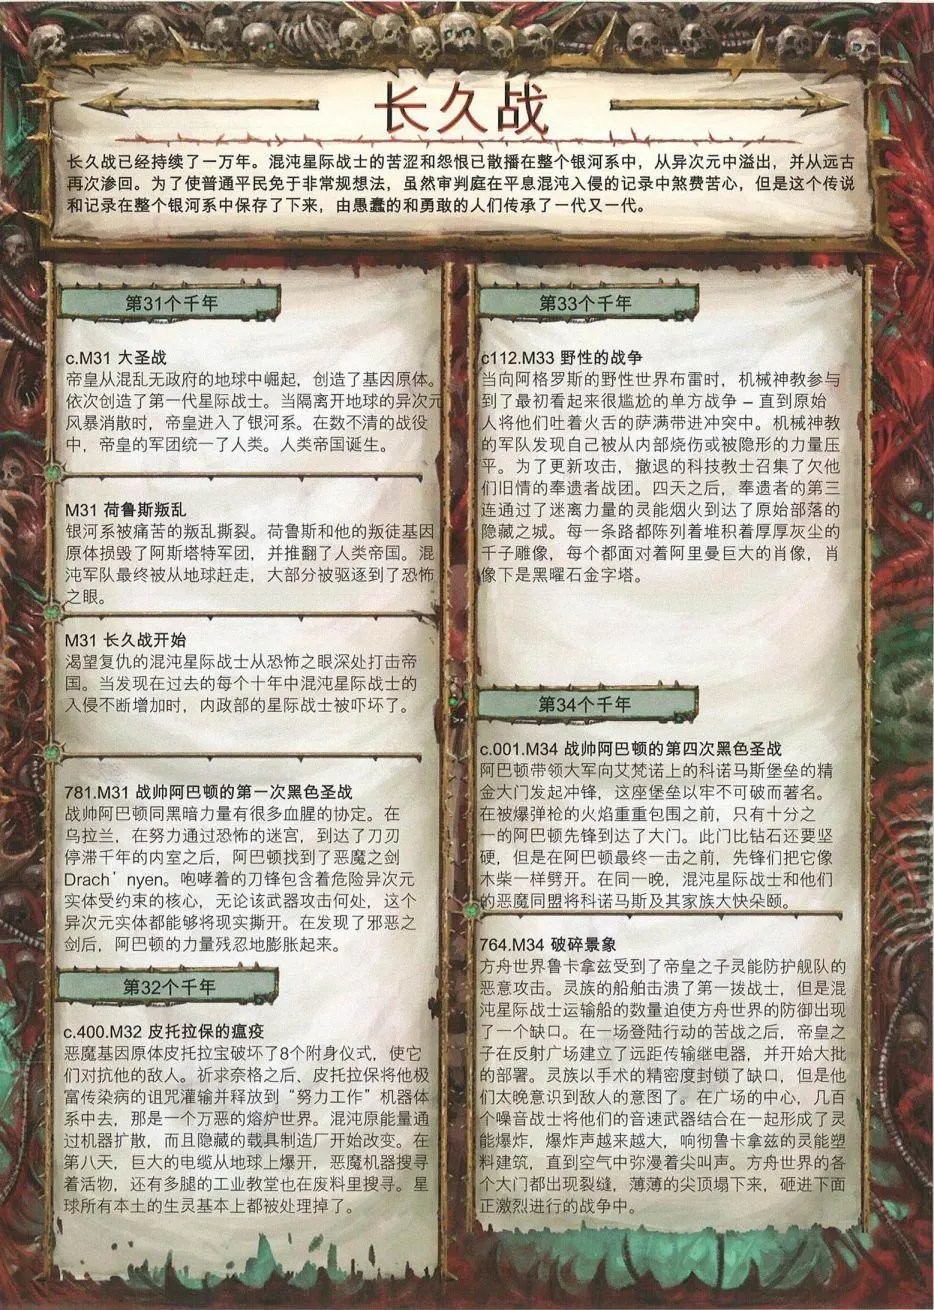 长久战
长久战已经持续了一万年。混沌星际战士的苦涩和怨恨已散播在整个银河系中，从异次元中溢出，并从远古
再次渗回。为了使普通平民免于非常规想法，虽然审判庭在平息混沌入侵的记录中煞费苦心，但是这个传说
和记录在整个银河系中保存了下来，由愚蠢的和勇敢的人们传承了一代又一代。
第31个千年
c.M31 大圣战
帝皇从混乱无政府的地球中崛起，创造了基因原体。
依次创造了第一代星际战士。当隔离开地球的异次元
风暴消散时，帝皇进入了银河系。在数不清的战役
中，帝皇的军团统一了人类。人类帝国诞生。
M31 荷鲁斯叛乱
银河系被痛苦的叛乱撕裂。荷鲁斯和他的叛徒基因
原体损毁了阿斯塔特军团，并推翻了人类帝国。混
沌军队最终被从地球赶走，大部分被驱逐到了恐怖
之眼。
M31 长久战开始
渴望复仇的混沌星际战士从恐怖之眼深处打击帝
国。当发现在过去的每个十年中混沌星际战士的
入侵不断增加时，内政部的星际战士被吓坏了。
781.M31 战帅阿巴顿的第一次黑色圣战
战帅阿巴顿同黑暗力量有很多血腥的协定。在
乌拉兰，在努力通过恐怖的迷宫，到达了刀刃
停滞千年的内室之后，阿巴顿找到了恶魔之剑
Drach’nyen。咆哮着的刀锋包含着危险异次元
实体受约束的核心，无论该武器攻击何处，这个
异次元实体都能够将现实撕开。在发现了邪恶之
剑后，阿巴顿的力量残忍地膨胀起来。
第32个千年
c.400.M32 皮托拉保的瘟疫
恶魔基因原体皮托拉宝破坏了8个附身仪式，使它
们对抗他的敌人。祈求奈格之后、皮托拉保将他极
富传染病的诅咒灌输并释放到“努力工作”机器体
系中去，那是一个万恶的熔炉世界。混沌原能量通
过机器扩散，而且隐藏的载具制造厂开始改变。在
第八天，巨大的电缆从地球上爆开，恶魔机器搜寻
着活物，还有多腿的工业教堂也在废料里搜寻。星
球所有本土的生灵基本上都被处理掉了。
第33个千年
c112.M33 野性的战争
当向阿格罗斯的野性世界布雷时，机械神教参与
到了最初看起来很尴尬的单方战争 – 直到原始
人将他们吐着火舌的萨满带进冲突中。机械神教
的军队发现自己被从内部烧伤或被隐形的力量压
平。为了更新攻击，撤退的科技教士召集了欠他
们旧情的奉遗者战团。四天之后，奉遗者的第三
连通过了迷离力量的灵能烟火到达了原始部落的
隐藏之城。每一条路都陈列着堆积着厚厚灰尘的
千子雕像，每个都面对着阿里曼巨大的肖像，肖
像下是黑曜石金字塔。
第34个千年
c.001.M34 战帅阿巴顿的第四次黑色圣战
阿巴顿带领大军向艾梵诺上的科诺马斯堡垒的精
金大门发起冲锋，这座堡垒以牢不可破而著名。
在被爆弹枪的火焰重重包围之前，只有十分之
一的阿巴顿先锋到达了大门。此门比钻石还要坚
硬，但是在阿巴顿最终一击之前，先锋们把它像
木柴一样劈开。在同一晚，混沌星际战士和他们
的恶魔同盟将科诺马斯及其家族大快朵颐。
764.M34 破碎景象
方舟世界鲁卡拿兹受到了帝皇之子灵能防护舰队的
恶意攻击。灵族的船舶击溃了第一拨战士，但是混
沌星际战士运输船的数量迫使方舟世界的防御出现
了一个缺口。在一场登陆行动的苦战之后，帝皇之
子在反射广场建立了远距传输继电器，并开始大批
的部署。灵族以手术的精密度封锁了缺口，但是他
们太晚意识到敌人的意图了。在广场的中心，几百
个噪音战士将他们的音速武器结合在一起形成了灵
能爆炸，爆炸声越来越大，响彻鲁卡拿兹的灵能塑
料建筑，直到空气中弥漫着尖叫声。方舟世界的各
个大门都出现裂缝，薄薄的尖顶塌下来，砸进下面
正激烈进行的战争中。